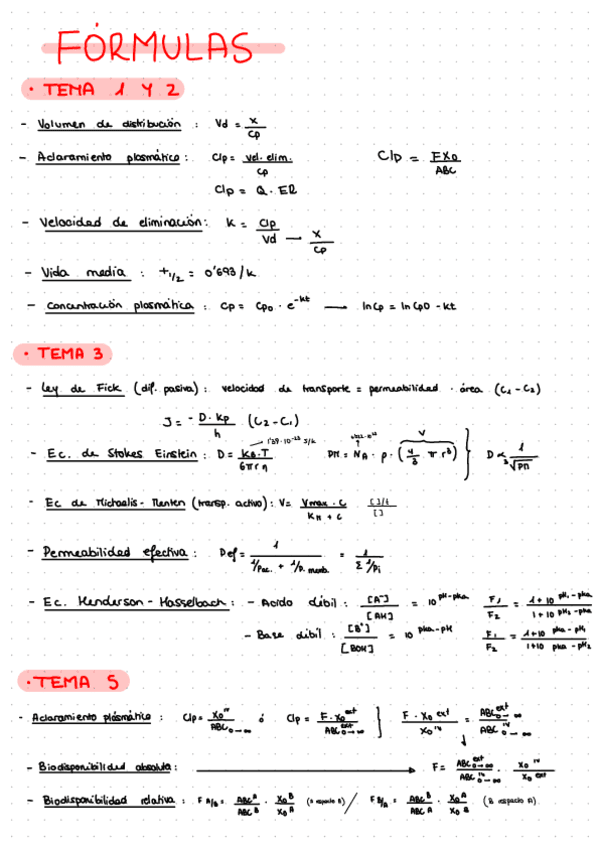 FÓRMULAS
· TEMA 1 Y 2
- Volumen de distribución : Vd = X / Cp
- Aclaramiento plasmático : Clp = Vel. elim. / Cp    Clp = FX0 / ABC
Clp = Q · ER
- Velocidad de eliminación : K = Clp / Vd → X / Cp
- Vida media : t1/2 = 0'693 / K
- Concentración plasmática : Cp = Cp0 · e^-kt → lnCp = lnCp0 - kt
· TEMA 3
- Ley de Fick (dif. pasiva) : velocidad de transporte = permeabilidad · área (C1 - C2)
J = - D · Kp / h (C2 - C1)
- Ec. de Stokes Einstein : D = KB · T / 6πrη    PM = NA · ρ · (4/3 π r³) } D ∝ 1 / ³√PM
V
- Ec de Michaelis - Menten (transp. activo) : V = Vmax · C / KM + C    [ ]/t / [ ]
- Permeabilidad efectiva : Def = 1 / 1/Pac. + 1/P. memb. = 1 / Σ 1/Pi
- Ec. Henderson - Hasselbach : - Acido débil : [A-] / [AH] = 10^pH-pka    F1 / F2 = 1 + 10^pH1-pka / 1 + 10^pH2-pka
- Base débil : [B+] / [BOH] = 10^pka-pH    F1 / F2 = 1+10^pka-pH1 / 1+10^pka-pH2
· TEMA 5
- Aclaramiento plásmático : Clp = X0^iv / ABC0→∞ ó Clp = F · X0^ext / ABC^ext 0→∞ } F · X0^ext / X0^iv = ABC^ext 0→∞ / ABC^iv 0→∞
- Biodisponibilidad absoluta : → F = ABC^ext 0→∞ / ABC^iv 0→∞ · X0^iv / X0^ext
- Biodisponibilidad relativa : F A/B = ABC^A / ABC^B · X0^B / X0^A (A respecto B) / F B/A = ABC^B / ABC^A · X0^A / X0^B (B respecto A)